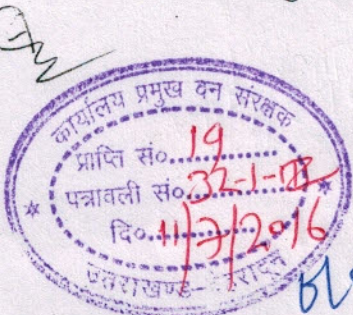 कार्यालय प्रमुख वन संरक्षक
प्राप्ति सं०..19
पत्रावली सं०.32-1-
दि०..11/7/2016
उत्तराखण्ड-देहरादून